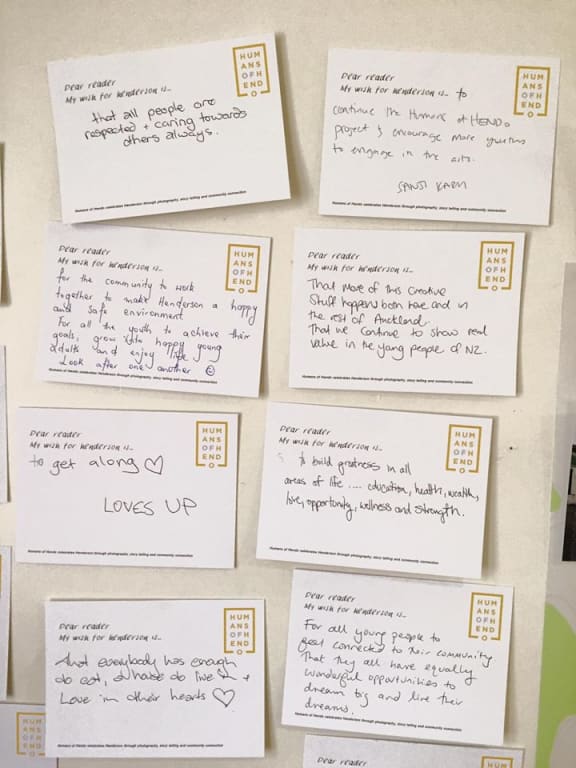 Dear reader
My wish for henderson is...
that all people are
respected + caring towards
others always.
HUM
ANS
OFH
END
O
Humans of Hendo celebrates Henderson through photography, story telling and community connection
Dear reader
My wish for henderson is... to
continue the Humans of HENDO
project & encourage more
to engage in the arts.
HUM
ANS
OFH
END
O
Humans of Hendo celebrates Henderson through photography, story telling and community connection
Dear reader
My wish for henderson is...
for the community to work
together to make Henderson a happy
and safe environment
For all the youth to achieve their
goals, grow into happy young
adults and enjoy life
Look after one another ☺
HUM
ANS
OFH
END
O
Humans of Hendo celebrates Henderson through photography, story telling and community connection
Dear reader
My wish for henderson is...
That more of this creative
Stuff happens both here and in
the rest of Auckland.
That we continue to show real
value in the young people of NZ.
HUM
ANS
OFH
END
O
Humans of Hendo celebrates Henderson through photography, story telling and community connection
Dear reader
My wish for henderson is...
to get along ♡
LOVES UP
HUM
ANS
OFH
END
O
Humans of Hendo celebrates Henderson through photography, story telling and community connection
Dear reader
My wish for henderson is...
to build greatness in all
areas of life .... education, health, wealth,
love, opportunity, wellness and strength.
HUM
ANS
OFH
END
O
Humans of Hendo celebrates Henderson through photography, story telling and community connection
Dear reader
My wish for henderson is...
that everybody has enough
to eat, to live +
Love in their hearts ♡
HUM
ANS
OFH
END
O
Humans of Hendo celebrates Henderson through photography, story telling and community connection
Dear reader
My wish for henderson is...
For all young people to
feel connected to their community
That they all have equally
wonderful opportunities to
dream big and live their
dreams.
HUM
ANS
OFH
END
O
Humans of Hendo celebrates Henderson through photography, story telling and community connection
HUM
ANS
OFH
END
O
Dear reader
HUM